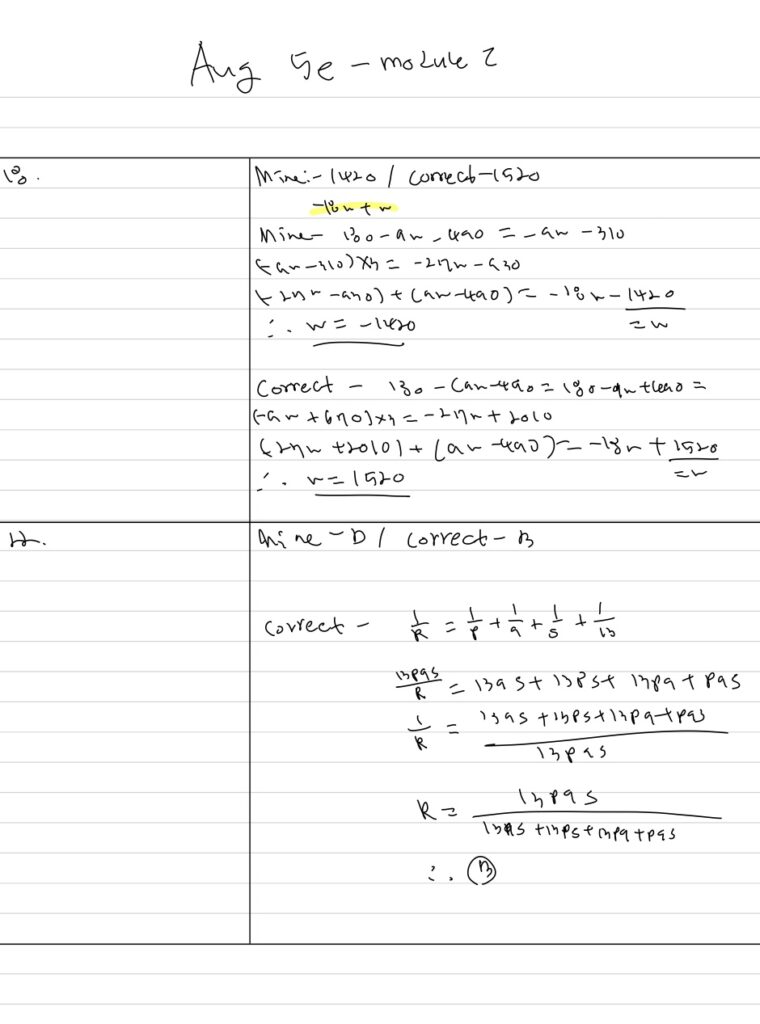 Aug 5e - module 2
18.
Mine:- 1420 / correct - 1520
-18n + w
Mine - 180 - 9n - 490 = -9n - 310
(-9n - 310) x 3 = -27n - 930
(-27n - 930) + (9n - 490) = -18n - 1420
= w
∴ w = -1420
Correct - 180 - (9n - 490 = 180 - 9n + 490 =
(-9n + 670) x 3 = -27n + 2010
(-27n + 2010) + (9n - 490) = -18n + 1520
= w
∴ w = 1520
22.
Mine - D / correct - B
correct - 1/R = 1/p + 1/q + 1/s + 1/13
13pqs/R = 13qs + 13ps + 13pq + pqs
1/R = 13qs + 13ps + 13pq + pqs / 13pqs
R = 13pqs / 13qs + 13ps + 13pq + pqs
∴ B